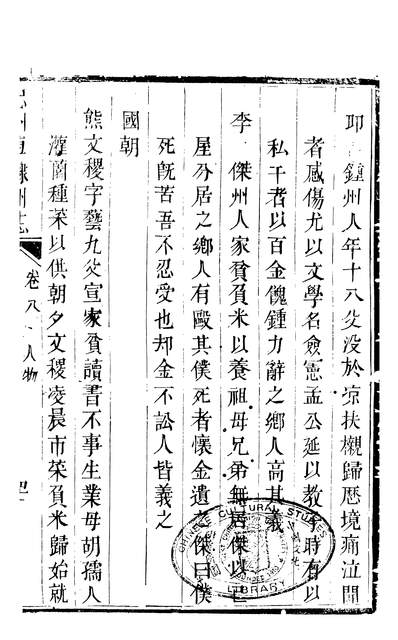 卭 鍾州人年十八父没於 凉扶櫬歸歴境痛泣聞
者感傷尤以文學名僉憲孟公延以教 時有以
私干者以百金餽鍾力辭之鄉人高其義
李 傑州人家貧負米以養祖母兄弟無居傑以己
屋分居之鄉人有毆其僕死者懷金遺之傑曰僕
死旣苦吾不忍受也却金不訟人皆義之
國朝
熊文稷字藝九父宣家貧讀書不事生業母胡孺人
灌園種菜以供朝夕文稷凌晨市菜負米歸始就
州直隸州志
卷八 人物
CHINESE CULTURAL STUDIES
LIBRARY